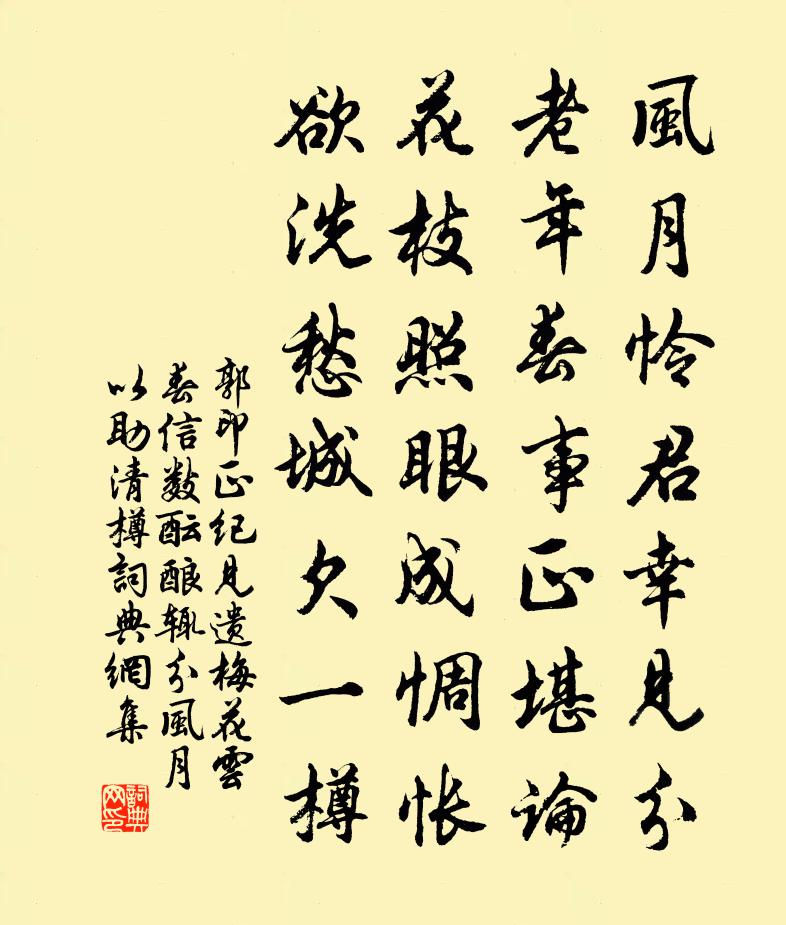 風月怜君幸見分
老年春事正堪論
花枝照眼成惆怅
欲洗愁城欠一樽
郭印正纪見遗梅花雲
春信数酝酿辄分風月
以助清樽詞典網集